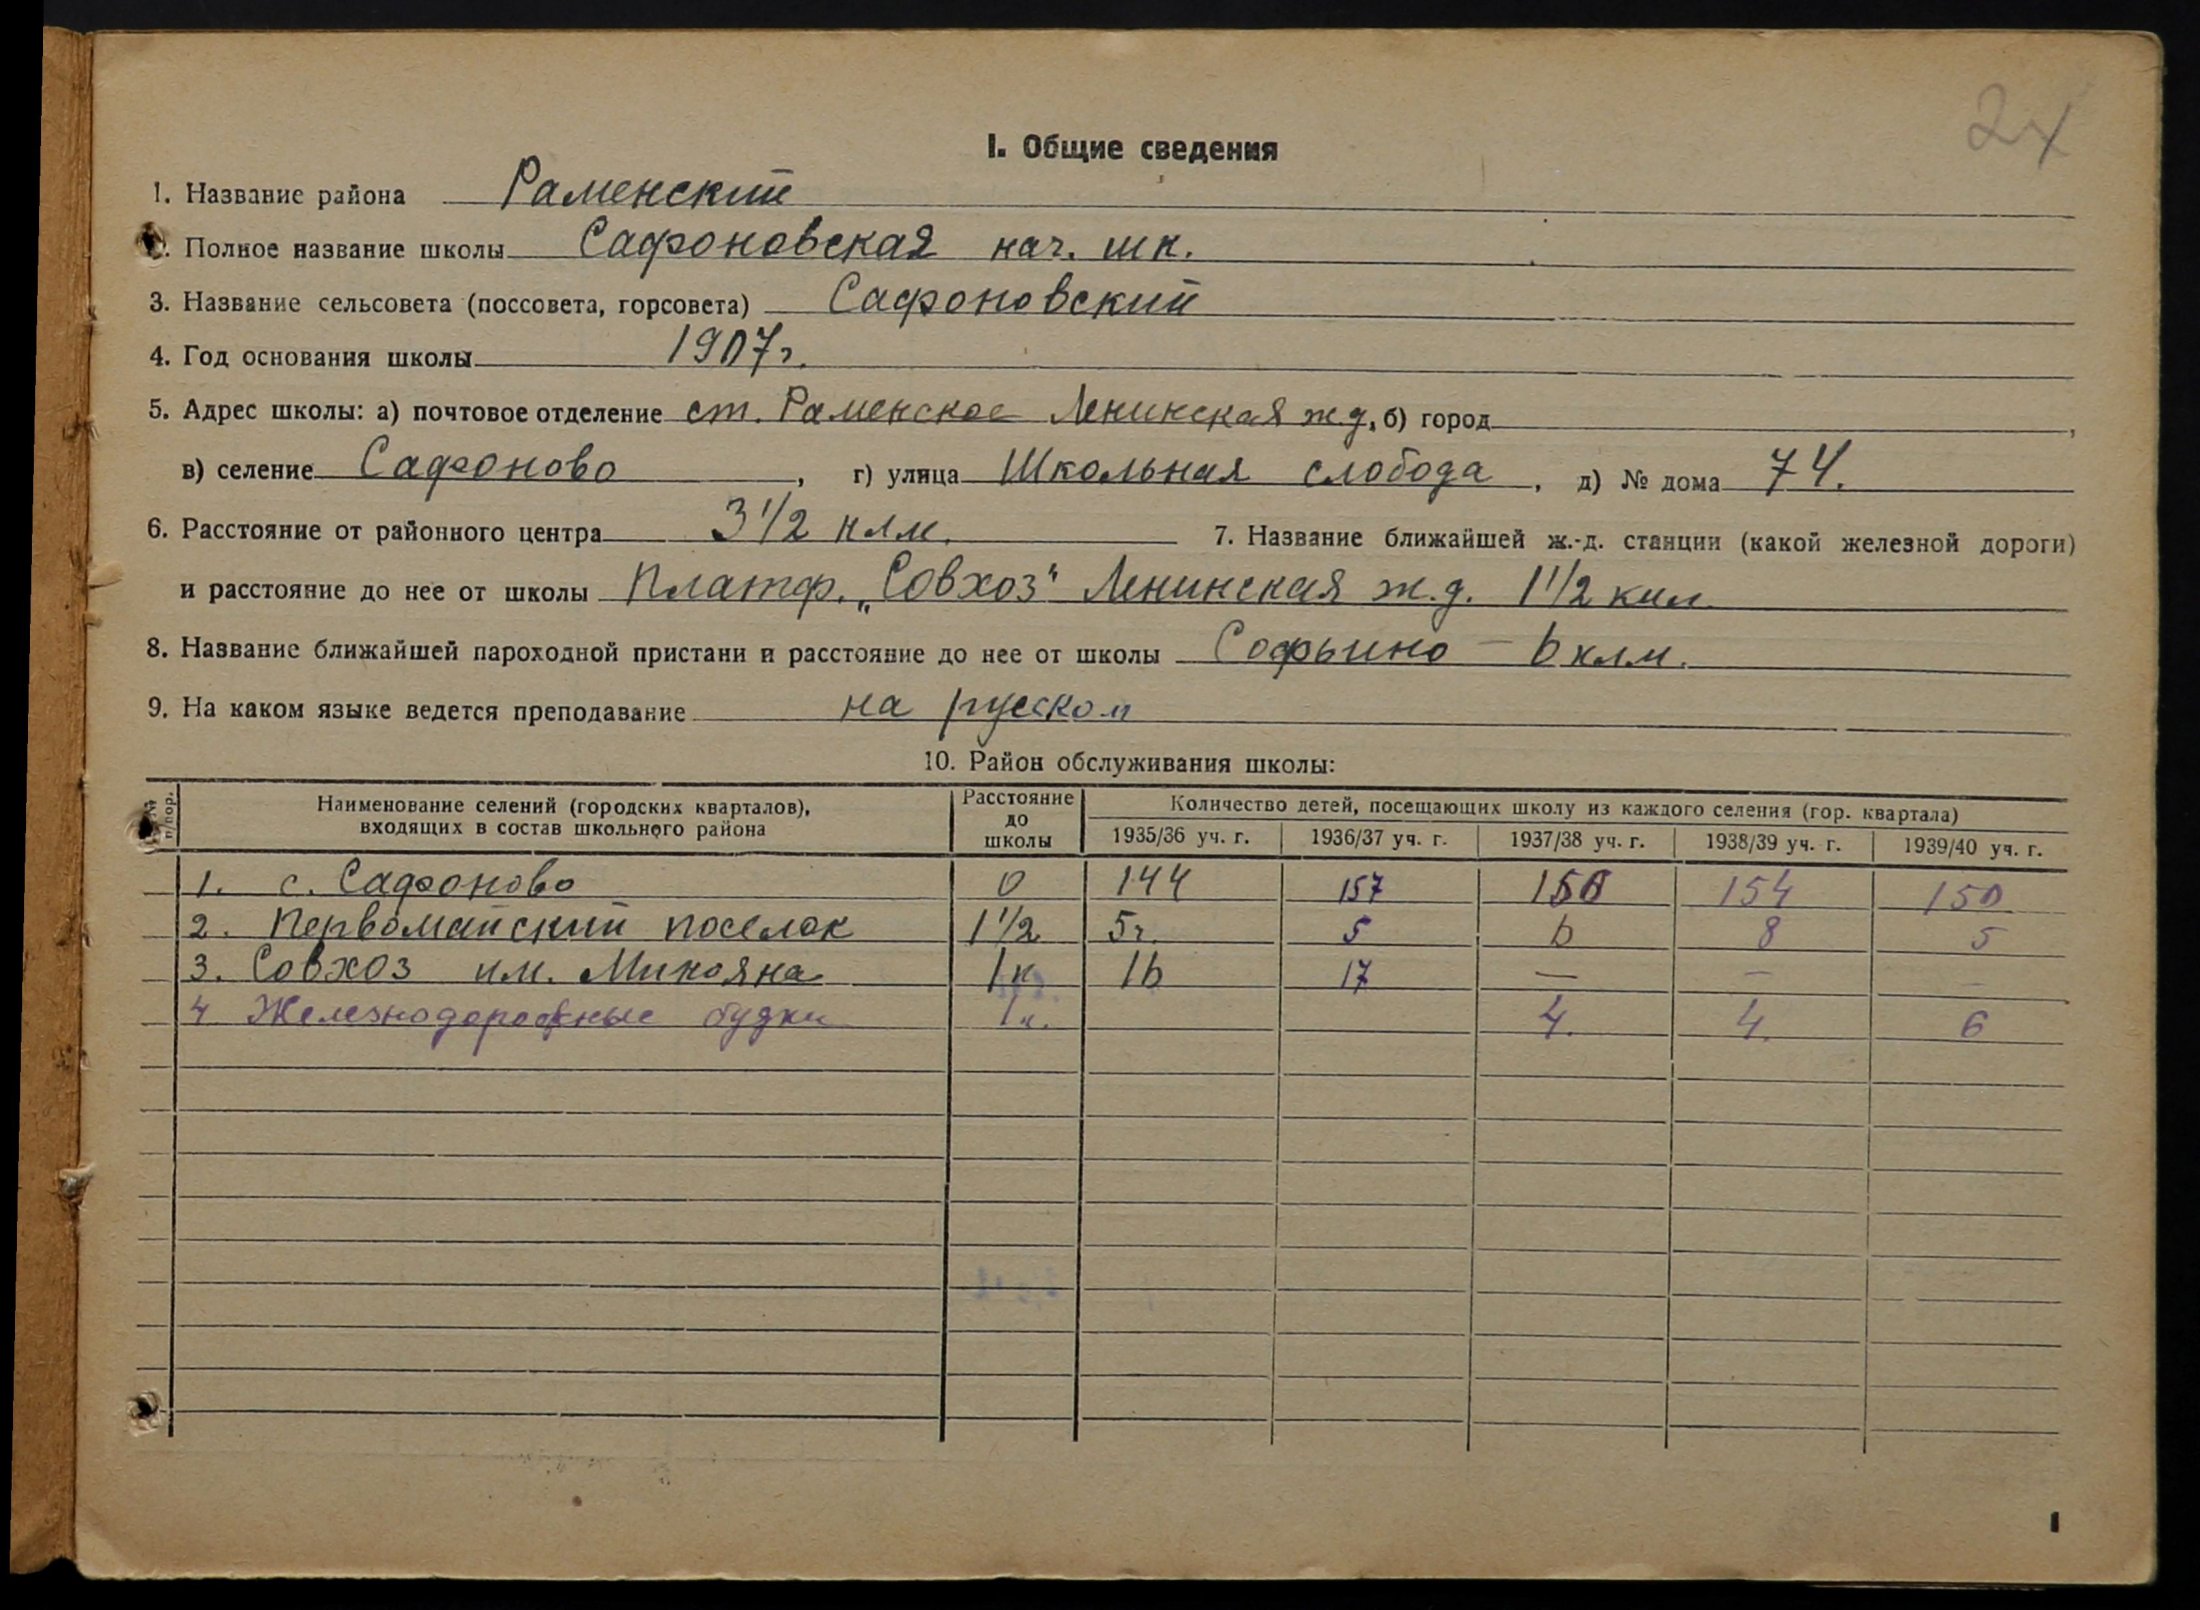 24
I. Общие сведения
1. Название района Раменский
Полное название школы Сафоновская нач. шк.
3. Название сельсовета (поссовета, горсовета) Сафоновский
4. Год основания школы 1907 г.
5. Адрес школы: а) почтовое отделение ст. Раменское Ленинская ж.д, б) город ,
в) селение Сафоново , г) улица Школьная слобода , д) № дома 74.
6. Расстояние от районного центра 3 1/2 клм. 7. Название ближайшей ж.-д. станции (какой железной дороги)
и расстояние до нее от школы Платф. „Совхоз“ Ленинская ж.д. 1 1/2 кил.
8. Название ближайшей пароходной пристани и расстояние до нее от школы Софьино — 6 клм.
9. На каком языке ведется преподавание на русском
10. Район обслуживания школы:
п/пор. Наименование селений (городских кварталов), входящих в состав школьного района Расстояние до школы Количество детей, посещающих школу из каждого селения (гор. квартала)
1935/36 уч. г. 1936/37 уч. г. 1937/38 уч. г. 1938/39 уч. г. 1939/40 уч. г.
1. с. Сафоново 0 144 157 154 150
2. Первомайский поселок 1 1/2 5 5 6 8 5
3. Совхоз им. Микояна 1 к 16 17 — —
4 Железнодорожные будки 1 к. 4. 4. 6
1